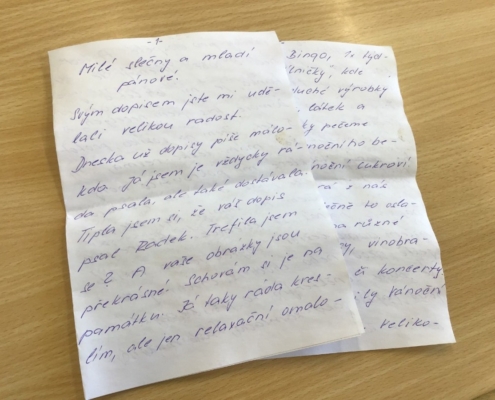 -1-
Milé slečny a mladí
pánové!
Svým dopisem jste mi udě-
lali velikou radost.
Dneska už dopisy píše málo-
kdo. Já jsem je vždycky rá-
da psala, ale také dostávala.
Tipla jsem si, že váš dopis
psal Radek. Trefila jsem
se? A vaše obrázky jsou
překrásné. Schovám si je na
památku. Já taky ráda kres-
lím, ale jen relaxační omalo-
Bingo,
kde
výrobky
látek a
pečeme
nočního be-
noční cukroví
z nás
to oslo-
na různé
vinobra-
či koncerty
Vánoční
veliko-